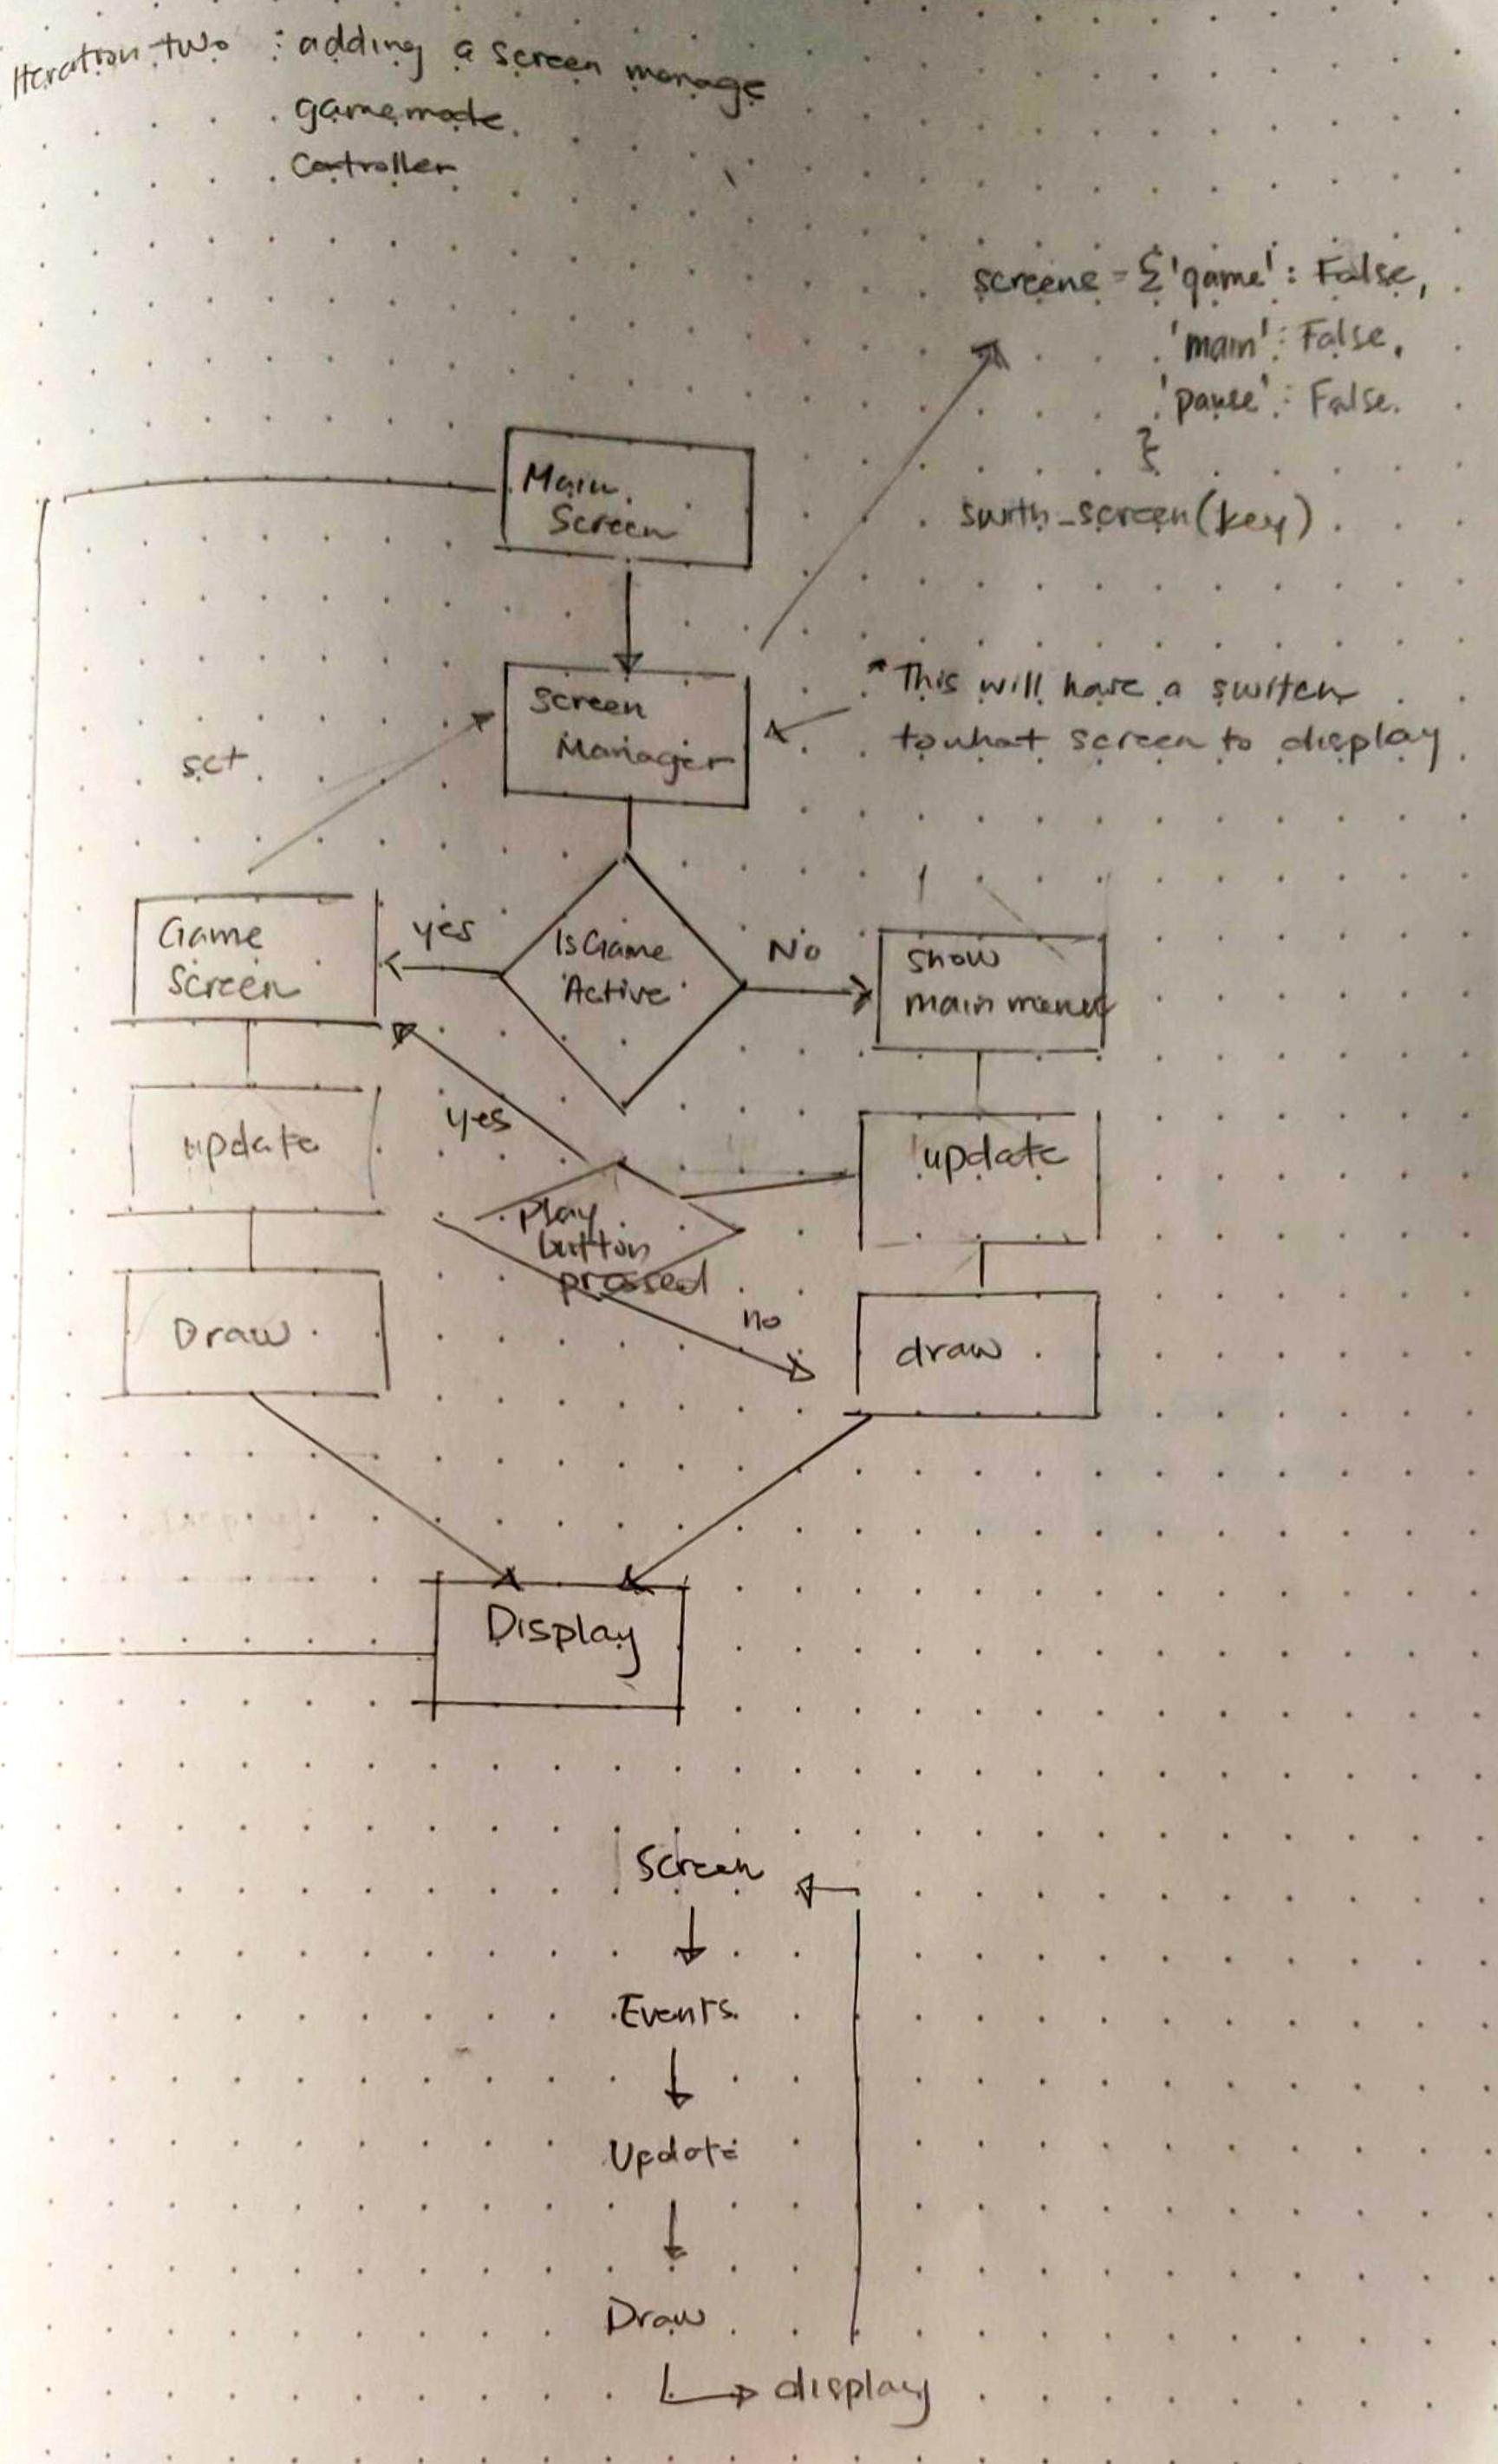 Iteration two : adding a screen manage
gamemode
Controller
screens = {'game': False,
'main': False,
'pause': False.
}
swith_screen(key)
Main
Screen
Screen
Manager
*This will have a switch
to what screen to display
set
Game
Screen
yes
Is Game
Active
No
show
main menu
update
yes
update
play
button
pressed
no
Draw
draw
Display
Screen
Events
Update
Draw
display